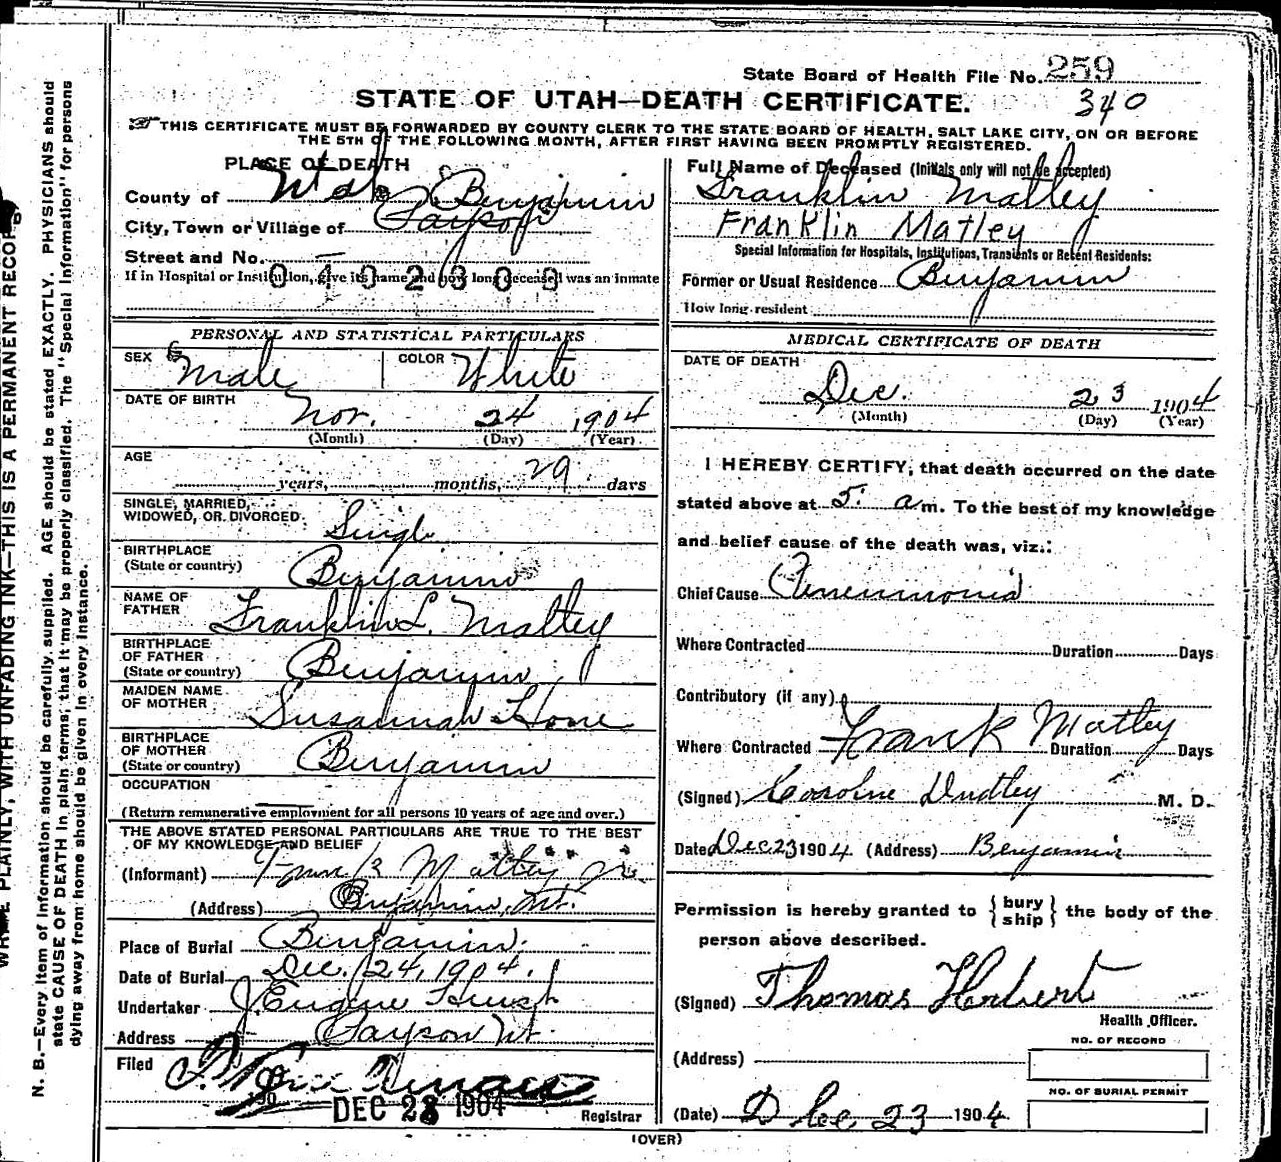 State Board of Health File No. 259
340
STATE OF UTAH—DEATH CERTIFICATE.
THIS CERTIFICATE MUST BE FORWARDED BY COUNTY CLERK TO THE STATE BOARD OF HEALTH, SALT LAKE CITY, ON OR BEFORE
THE 5TH OF THE FOLLOWING MONTH, AFTER FIRST HAVING BEEN PROMPTLY REGISTERED.
PLACE OF DEATH
County of Utah Benjamin
City, Town or Village of Payson
Street and No. —
If in Hospital or Institution, give its name and how long deceased was an inmate
0402309
PERSONAL AND STATISTICAL PARTICULARS
SEX Male COLOR White
DATE OF BIRTH
Nov. 24 1904
(Month) (Day) (Year)
AGE
years, months, 29 days
SINGLE, MARRIED,
WIDOWED, OR DIVORCED. Single
BIRTHPLACE
(State or country) Benjamin
NAME OF
FATHER Franklin L. Matley
BIRTHPLACE
OF FATHER
(State or country) Benjamin
MAIDEN NAME
OF MOTHER Susannah Hone
BIRTHPLACE
OF MOTHER
(State or country) Benjamin
OCCUPATION
(Return remunerative employment for all persons 10 years of age and over.)
THE ABOVE STATED PERSONAL PARTICULARS ARE TRUE TO THE BEST
OF MY KNOWLEDGE AND BELIEF
(Informant) Frank Matley Jr.
(Address) Benjamin, Ut.
Place of Burial Benjamin.
Date of Burial Dec. 24, 1904.
Undertaker J. Eugene
Address Payson Ut.
Filed
190
DEC 28 1904
Registrar
Full Name of Deceased (Initials only will not be accepted)
Franklin Matley
Franklin Matley
Special Information for Hospitals, Institutions, Transients or Recent Residents:
Former or Usual Residence Benjamin
How long resident
MEDICAL CERTIFICATE OF DEATH
DATE OF DEATH
Dec. 23 1904
(Month) (Day) (Year)
I HEREBY CERTIFY, that death occurred on the date
stated above at 5 a m. To the best of my knowledge
and belief cause of the death was, viz.:
Chief Cause Pneumonia
Where Contracted Duration Days
Contributory (if any)
Where Contracted Frank Matley Duration Days
(Signed) Caroline Dudley M. D.
Date Dec 23 1904 (Address) Benjamin
Permission is hereby granted to { bury
ship } the body of the
person above described.
(Signed) Thomas
Health Officer.
NO. OF RECORD
(Address)
NO. OF BURIAL PERMIT
(Date) Dec 23 1904
(OVER)
N. B.—Every item of information should be carefully supplied. AGE should be stated EXACTLY. PHYSICIANS should
state CAUSE OF DEATH in plain terms, that it may be properly classified. The "Special Information" for persons
dying away from home should be given in every instance.
PLAINLY, WITH UNFADING INK—THIS IS A PERMANENT